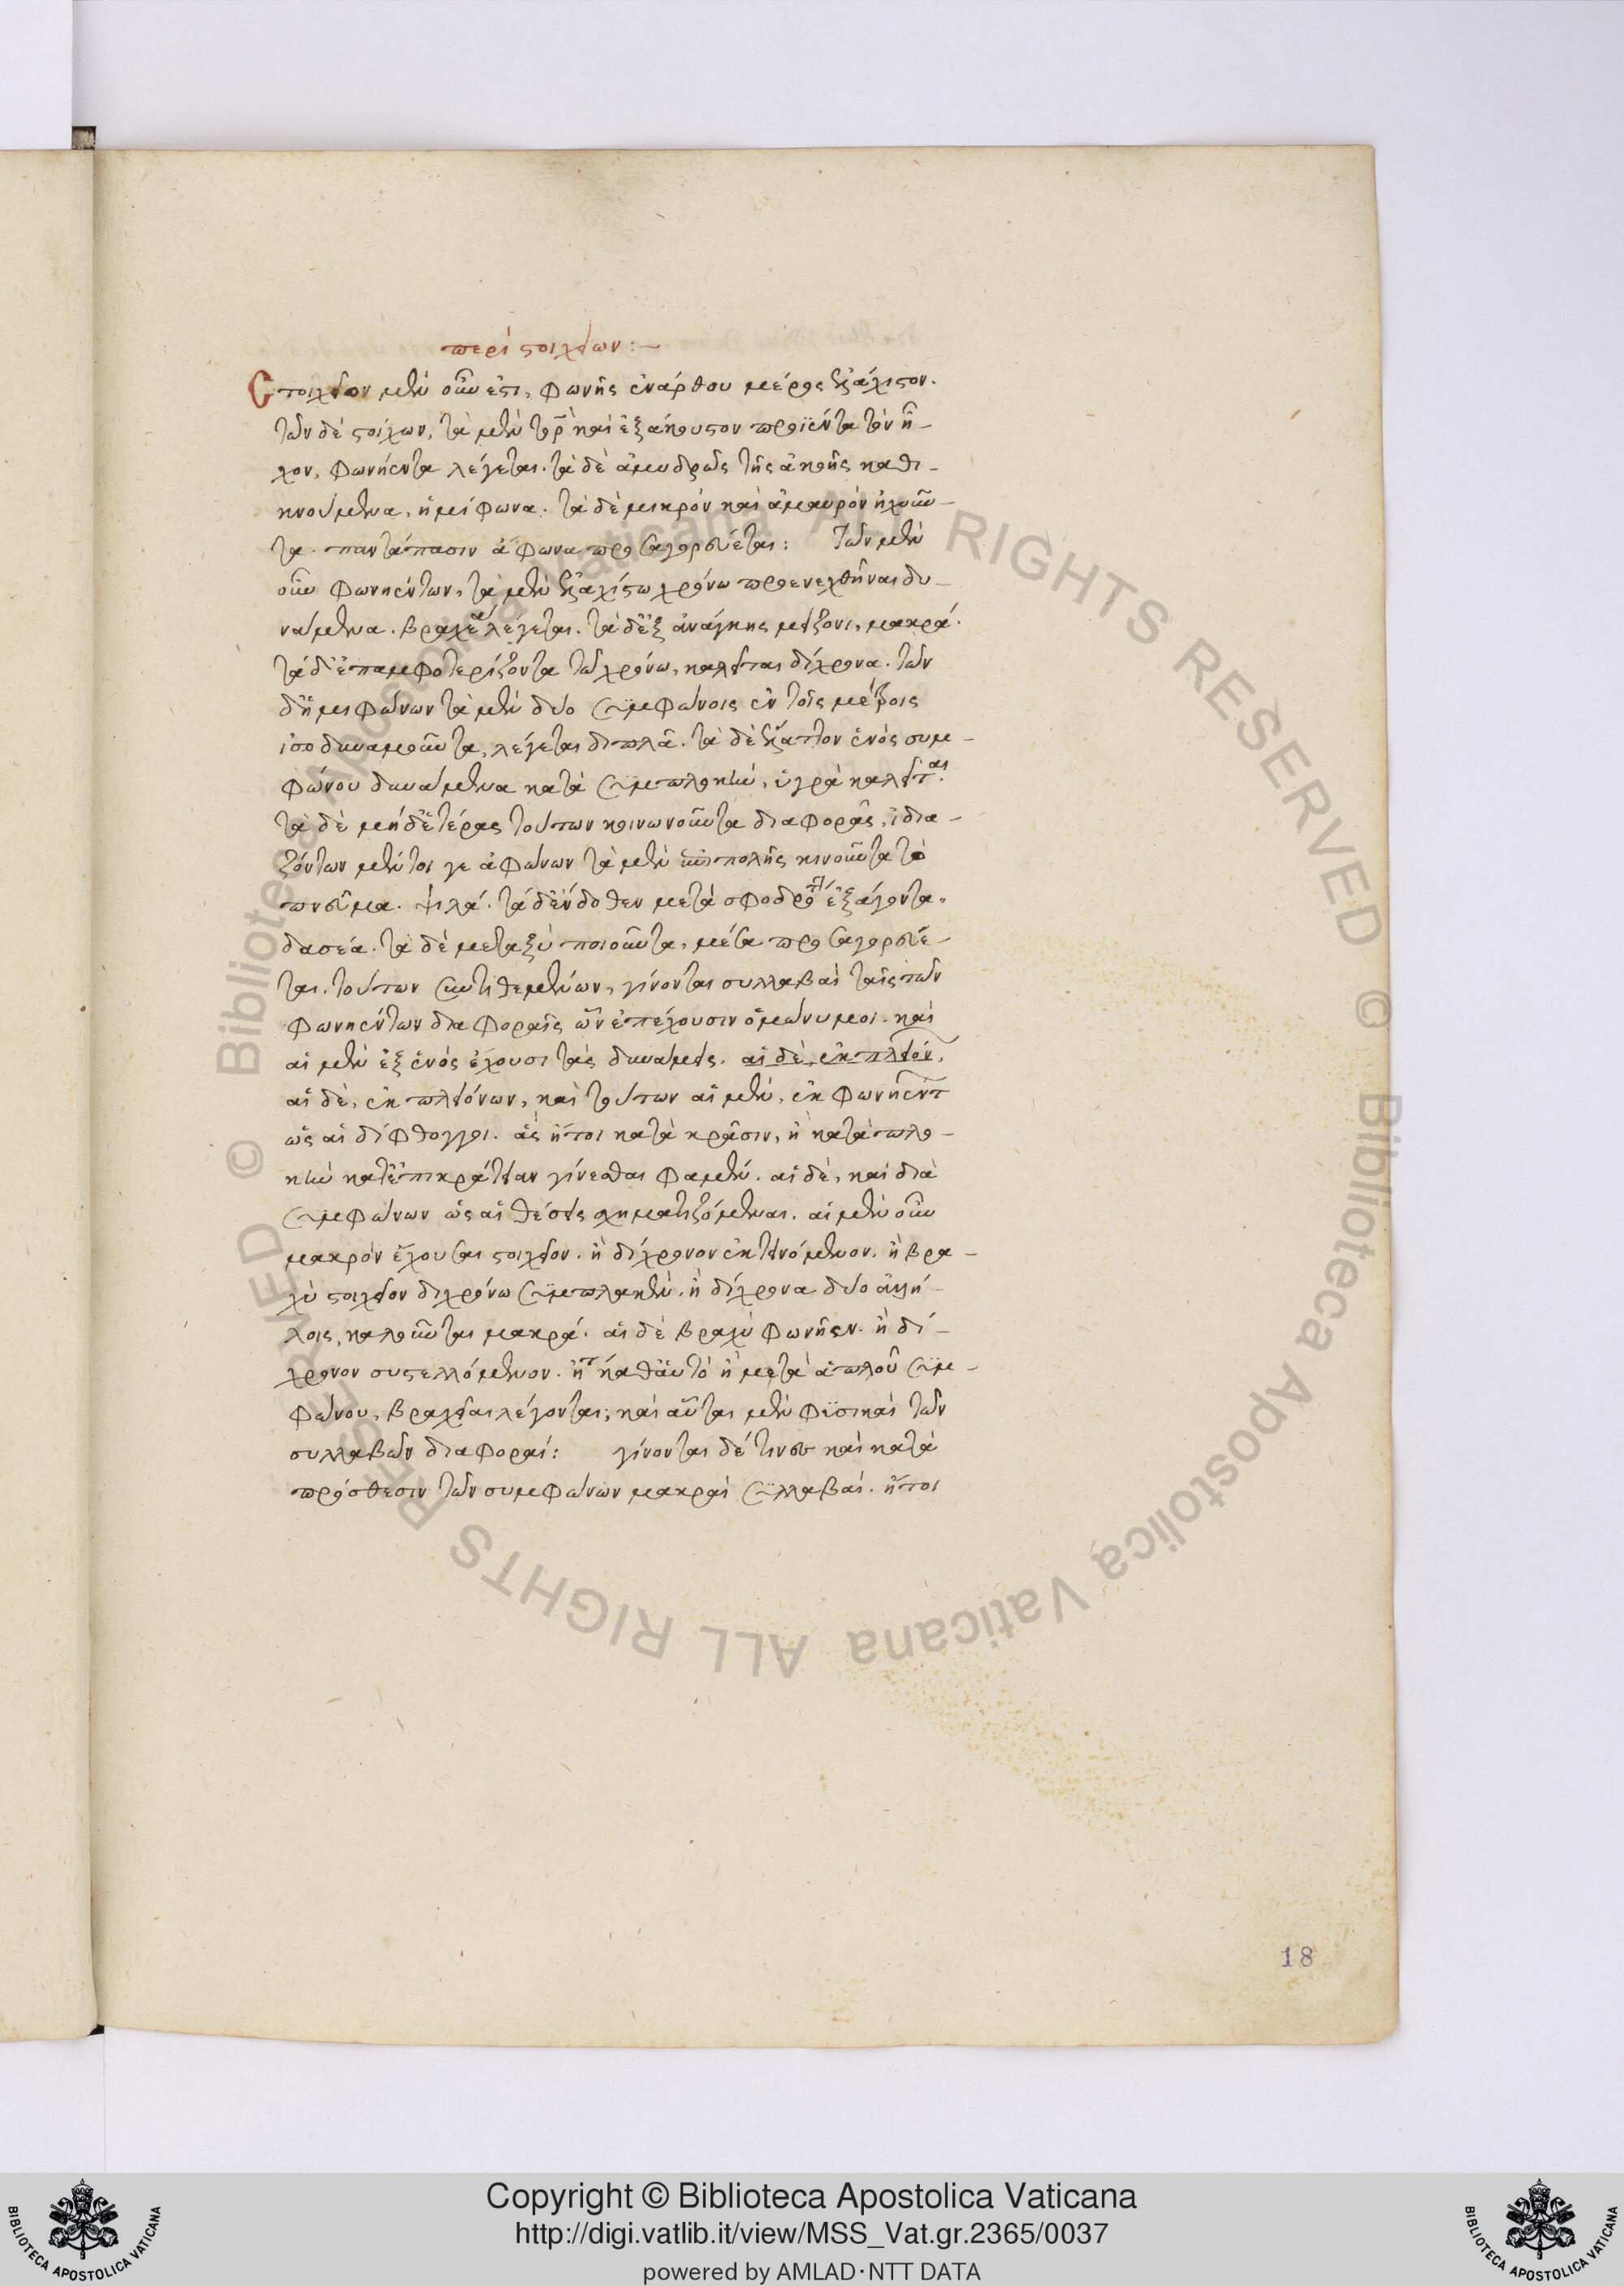 περὶ στοιχείων:—
Στοιχεῖον μὲν οὖν ἐστι, φωνῆς ἐνάρθου μέρος ἐλάχιστον.
τῶν δὲ στοίχων, τὰ μὲν καὶ ἐξάκουστον προϊέντα τὸν ἦ-
χον, φωνήεντα λέγεται. τὰ δὲ ἀμυδρῶς τῆς ἀκοῆς καθι-
κνούμενα, ἡμίφωνα. τὰ δὲ μικρὸν καὶ ἀμαυρὸν ἠχοῦν-
τα. παντάπασιν ἄφωνα προσαγορεύεται: Τῶν μὲν
οὖν φωνηέντων, τὰ μὲν ἐλαχίστω χρόνω προενεχθῆναι δυ-
νάμενα. βραχέα λέγεται. τὰ δ' ἐξ ἀνάγκης μείζονι, μακρά.
τὰ δ' ἐπαμφοτερίζοντα τῶ χρόνω, καλεῖται δίχρονα. τῶν
δ' ἡμιφώνων τὰ μὲν δύο συμφώνοις ἐν τοῖς μέτροις
ἰσοδυναμοῦντα, λέγεται διπλᾶ. τὰ δὲ ἔλαττον ἑνὸς συμ-
φώνου δυνάμενα κατὰ συμπλοκὴν, ὑγρὰ καλεῖται.
τὰ δὲ μηδετέρας τούτων κοινωνοῦντα διαφορᾶς, ἰδια-
ζόντων μέντοι γε ἀφώνων τὰ μὲν ἐπιπολῆς κινοῦντα τὸ
πνεῦμα. ψιλά. τὰ δ' ἔνδοθεν μετὰ σφοδρότ ἐξάγοντα,
δασέα. τὰ δὲ μεταξὺ ποιοῦντα, μέσα προσαγορεύε-
ται. τούτων συντιθεμένων, γίνονται συλλαβαὶ ταῖς τῶν
φωνηέντων διαφοραῖς ὧν ἐπέχουσιν ὁμώνυμοι. καὶ
αἱ μὲν ἐξ ἑνὸς ἔχουσι τὰς δυνάμεις. αἱ δὲ, ἐκ πλειόν,
αἱ δὲ, ἐκ πλειόνων, καὶ τούτων αἱ μὲν, ἐκ φωνηέντ
ὡς αἱ δίφθογγοι. ἃς ἤτοι κατὰ κρᾶσιν, ἢ κατὰ πλο-
κὴν κατ' ἐπικράτειαν γίνεσθαι φαμέν. αἱ δὲ, καὶ διὰ
συμφώνων ὡς αἱ θέσεις σχηματιζόμεναι. αἱ μὲν οὖν
μακρὸν ἔχουσαι στοιχεῖον. ἢ δίχρονον ἐκτεινόμενον. ἢ βρα-
χὺ στοιχεῖον διχρόνω συμπλακὲν. ἢ δίχρονα δύο ἀλλή-
λοις, καλοῦνται μακρά. αἱ δὲ βραχὺ φωνῆεν. ἢ δί-
χρονον συστελλόμενον. ἤτ καθ' αὑτὸ ἢ μετὰ ἁπλοῦ συμ-
φώνου, βραχεῖαι λέγονται; καὶ αὗται μὲν φυσικαὶ τῶν
συλλαβῶν διαφοραί: γίνονται δέ τινες καὶ κατὰ
πρόσθεσιν τῶν συμφώνων μακραὶ συλλαβαί. ἤτοι
18
© Biblioteca Apostolica Vaticana ALL RIGHTS RESERVED © Biblioteca Apostolica Vaticana ALL RIGHTS RESERVED
Copyright © Biblioteca Apostolica Vaticana
http://digi.vatlib.it/view/MSS_Vat.gr.2365/0037
powered by AMLAD·NTT DATA
BIBLIOTECA APOSTOLICA VATICANA
BIBLIOTECA APOSTOLICA VATICANA